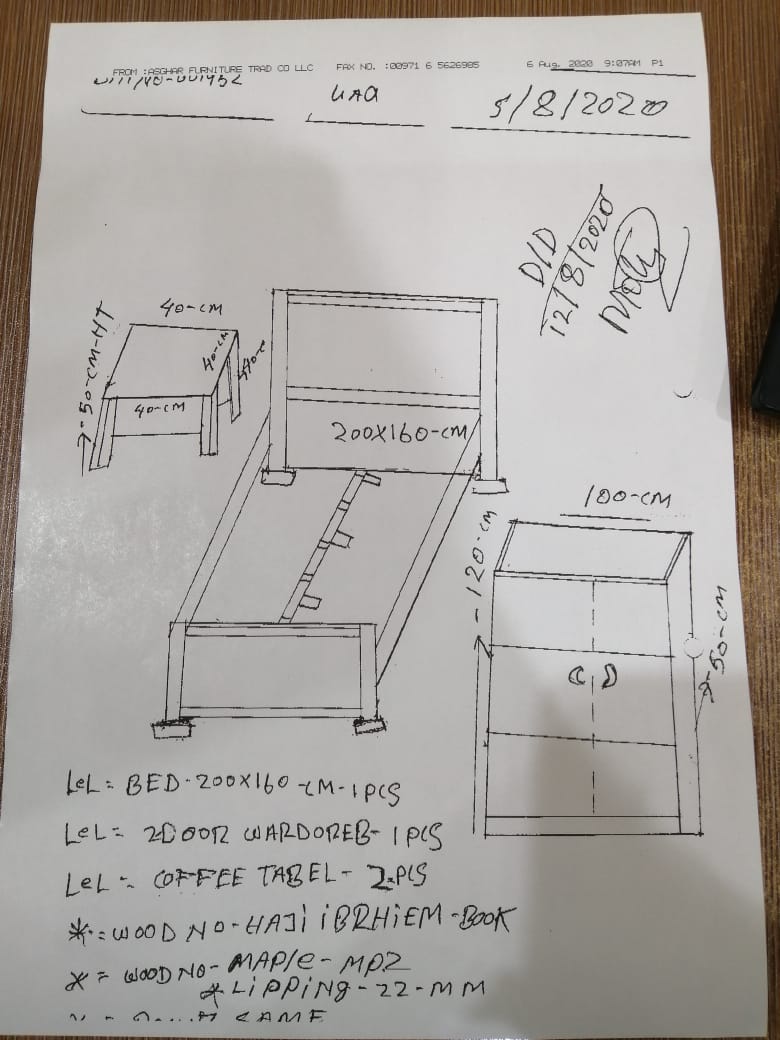 FROM :ASGHAR FURNITURE TRAD CO LLC FAX NO. :00971 6 5626985 6 Aug. 2020 9:07AM P1
5/8/2020
D/D
12/8/2020
40-CM
50-CM-HT
40-CM
40-CM
200X160-CM
100-CM
120-CM
50-CM
LeL= BED-200X160-CM-1PCS
LeL= 2DOOR WARDOREB-1PCS
LeL= COFFEE TABEL-2-PCS
*=WOOD NO-HAJI iBRHiEM-BOOK
*= WOOD NO- MAPle-MPZ
*LiPPiNg-22-MM
SAME